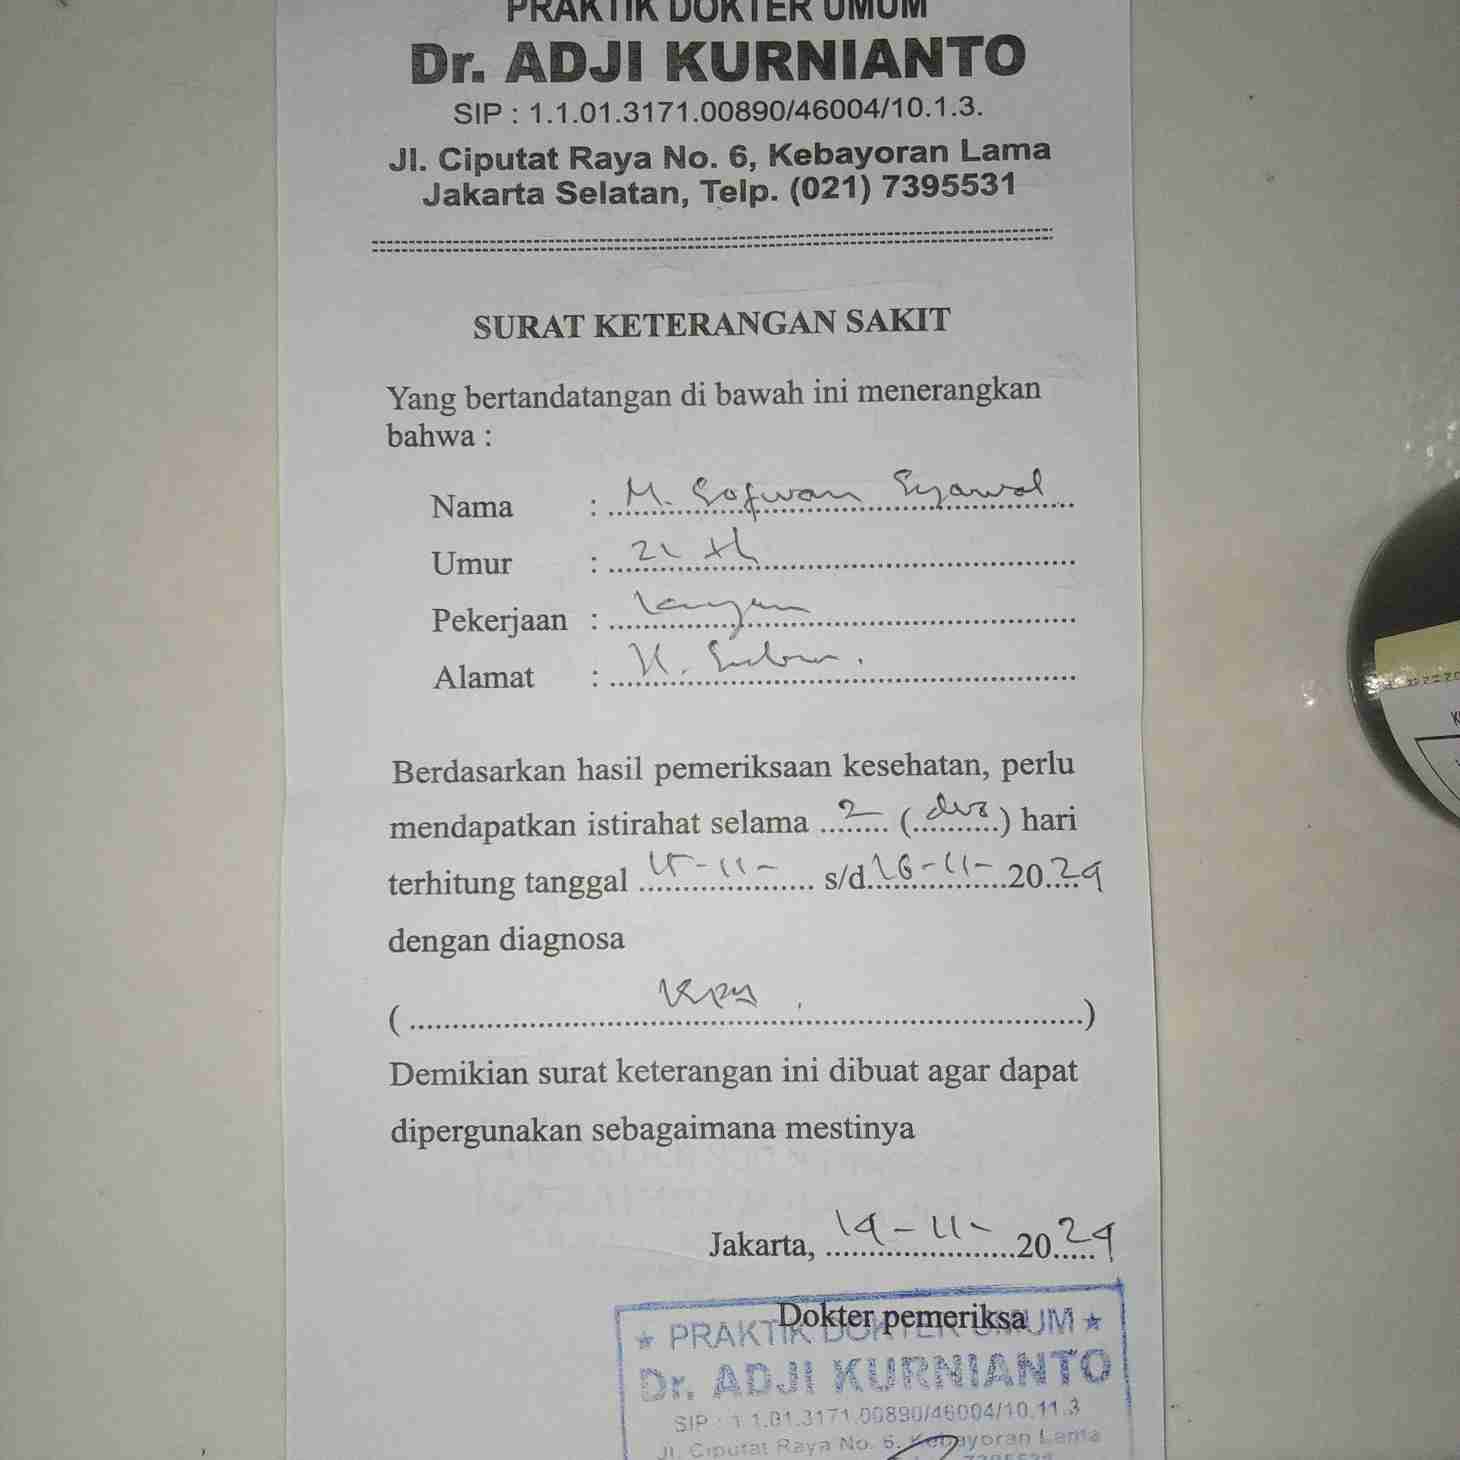 PRAKTIK DOKTER UMUM
Dr. ADJI KURNIANTO
SIP : 1.1.01.3171.00890/46004/10.1.3.
Jl. Ciputat Raya No. 6, Kebayoran Lama
Jakarta Selatan, Telp. (021) 7395531
SURAT KETERANGAN SAKIT
Yang bertandatangan di bawah ini menerangkan
bahwa :
Nama : M. Sofwan Syawal
Umur : 21 th
Pekerjaan :
Alamat :
Berdasarkan hasil pemeriksaan kesehatan, perlu
mendapatkan istirahat selama 2 (dua) hari
terhitung tanggal 15-11- s/d 16-11-2024
dengan diagnosa
( )
Demikian surat keterangan ini dibuat agar dapat
dipergunakan sebagaimana mestinya
Jakarta, 14-11-2024
Dokter pemeriksa
★ PRAKTIK DOKTER UMUM ★
Dr. ADJI KURNIANTO
SIP : 1.1.01.3171.00890/46004/10.11.3
Jl. Ciputat Raya No. 6, Kebayoran Lama